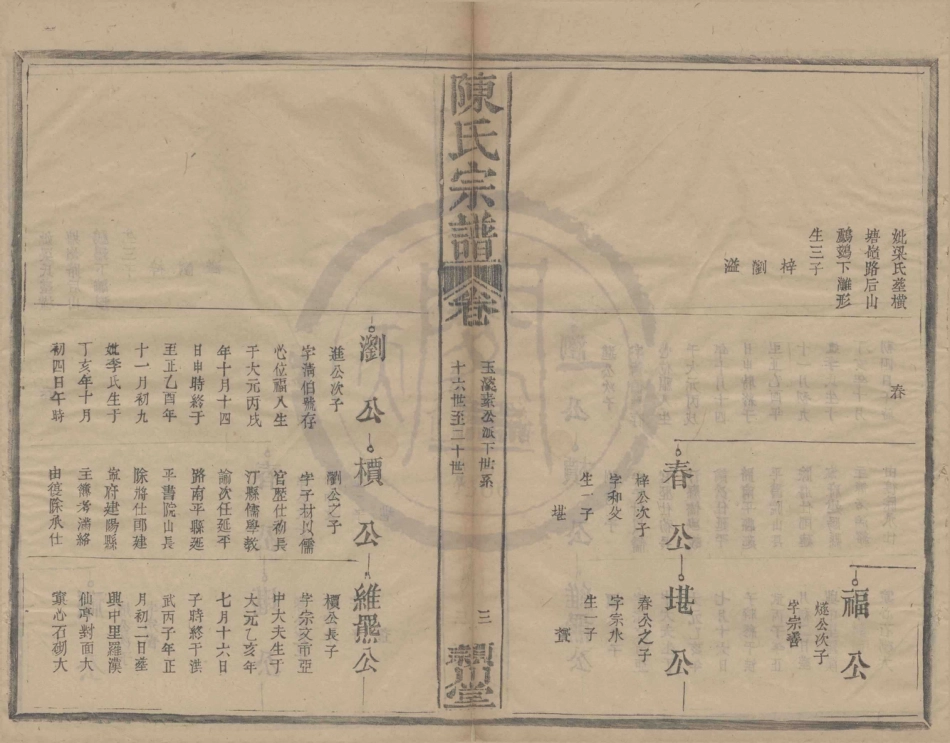 妣梁氏墓橫
塘嶺路后山
鸕鷀下灘形
生三子
梓
瀏
溢
春
春公
梓公次子
字和父
生一子
堪
福公
煃公次子
字宗善
堪公
春公之子
字宗水
生一子
陳氏宗譜 卷
玉溪素公派下世系
十六世至二十世
三
穎川堂
瀏公
進公次子
字清伯號存
心位福人生
于大元丙戌
年十月十四
日申時終于
至正乙酉年
十一月初九
妣李氏生于
丁亥年十月
初四日午時
櫝公
瀏公之子
字子材以儒
官歷仕初長
汀縣儒學教
諭次任延平
路南平縣延
平書院山長
除將仕郎建
寧府建陽縣
主簿考滿絡
由復除承仕
維熊公
櫝公長子
字宗文市亞
中大夫生于
大元乙亥年
七月十六日
子時終于洪
武丙子年正
月初二日墓
興中里羅漢
仙亭對面大
窠心石砌大